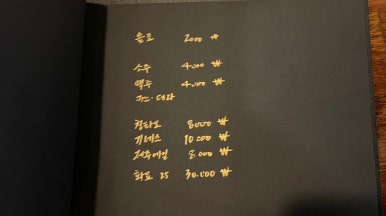 음료 2000 ₩
소주 4.000 ₩
맥주 4.000 ₩
카스·테라
칭타오 8000 ₩
기네스 10.000 ₩
제주에일 8.000 ₩
화요 25 30.000 ₩